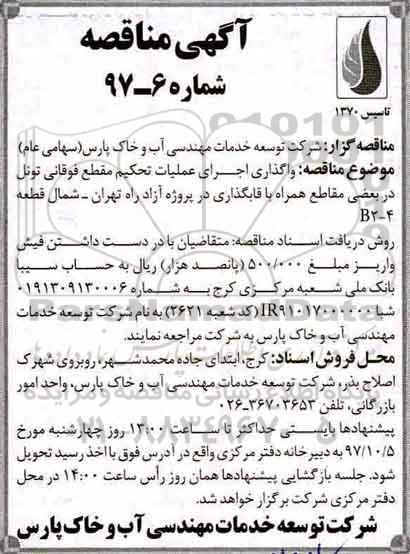 آگهی مناقصه
شماره ۶-۹۷
تاسیس ۱۳۷۰
مناقصه گزار: شرکت توسعه خدمات مهندسی آب و خاک پارس(سهامی عام)
موضوع مناقصه: واگذاری اجرای عملیات تحکیم مقطع فوقانی تونل
در بعضی مقاطع همراه با قابگذاری در پروژه آزاد راه تهران - شمال قطعه
B۲-۴
روش دریافت اسناد مناقصه: متقاضیان با در دست داشتن فیش
واریز مبلغ ۵۰۰/۰۰۰ (پانصد هزار) ریال به حساب سیبا
بانک ملی شعبه مرکزی کرج به شماره ۰۱۹۱۳۰۹۱۳۰۰۰۶
شبا IR۹۱۰۱۷۰۰۰۰۰۰ (کد شعبه ۲۶۲۱) به نام شرکت توسعه خدمات
مهندسی آب و خاک پارس به شرکت مراجعه نمایند.
محل فروش اسناد: کرج، ابتدای جاده محمدشهر، روبروی شهرک
اصلاح بذر، شرکت توسعه خدمات مهندسی آب و خاک پارس، واحد امور
بازرگانی، تلفن ۳۶۷۰۳۶۵۳-۰۲۶
پیشنهادها بایستی حداکثر تا ساعت ۱۳:۰۰ روز چهارشنبه مورخ
۹۷/۱۰/۵ به دبیرخانه دفتر مرکزی واقع در آدرس فوق با اخذ رسید تحویل
شود. جلسه بازگشایی پیشنهادها همان روز رأس ساعت ۱۴:۰۰ در محل
دفتر مرکزی شرکت برگزار خواهد شد.
شرکت توسعه خدمات مهندسی آب و خاک پارس